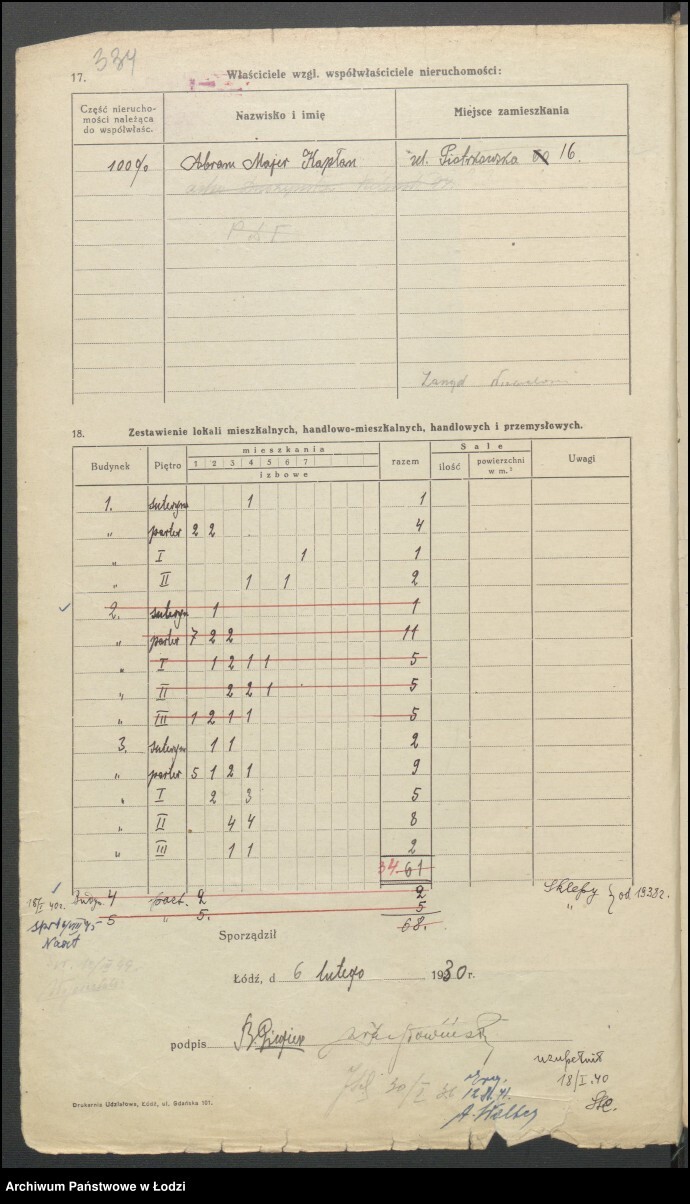 334
17. Właściciele wzgl. współwłaściciele nieruchomości:
Część nierucho-
mości należąca
do współwłaśc.
Nazwisko i imię
Miejsce zamieszkania
100% Abram Majer Kapłan ul. Piotrkowska 16.
P Z F
Zarząd
18. Zestawienie lokali mieszkalnych, handlowo-mieszkalnych, handlowych i przemysłowych.
Budynek Piętro mieszkania razem Sale Uwagi
1 2 3 4 5 6 7
izbowe
ilość powierzchni
w m.²
1. suteryna 1 1
„ parter 2 2 4
„ I 1 1
„ II 1 1 2
2. suteryn 1 1
„ parter 7 2 2 11
„ I 1 2 1 1 5
„ II 2 2 1 5
„ III 1 2 1 1 5
3. suteryn 1 1 2
„ parter 5 1 2 1 9
„ I 2 3 5
„ II 4 4 8
„ III 1 1 2
34 61
18/I 40r. Budyn. 4 part. 2 2 Sklepy } od 1938r.
5 „ 5. 5 „
68.
Sporządził
Łódź, d 6 lutego 1930 r.
podpis
uzupełnił
18/I.40
30/I
Drukarnia Udziałowa, Łódź, ul. Gdańska 101.
Archiwum Państwowe w Łodzi